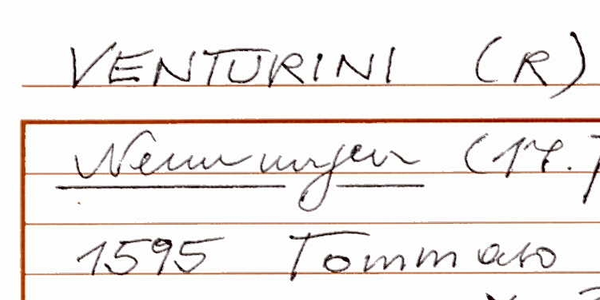 VENTURINI (R)
Nennungen (17.
1595 Tommaso